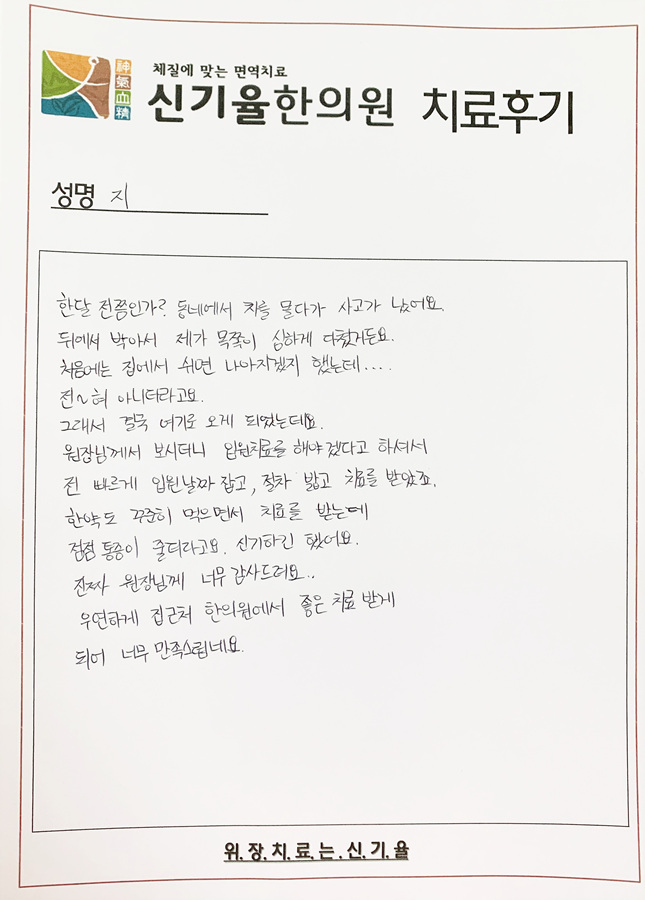 체질에 맞는 면역치료
神氣血精
신기율한의원 치료후기
성명 지
한달 전쯤인가? 동네에서 차를 몰다가 사고가 났어요.
뒤에서 박아서 제가 목쪽이 심하게 다쳤거든요.
처음에는 집에서 쉬면 나아지겠지 했는데....
전~혀 아니더라고요.
그래서 결국 여기로 오게 되었는데요.
원장님께서 보시더니 입원치료를 해야겠다고 하셔서
전 빠르게 입원날짜 잡고, 절차 밟고 치료를 받았죠.
한약도 꾸준히 먹으면서 치료를 받는데
점점 통증이 줄더라고요. 신기하긴 했어요.
진짜 원장님께 너무 감사드려요..
우연하게 집근처 한의원에서 좋은 치료 받게
되어 너무 만족스럽네요.
위.장.치.료.는.신.기.율